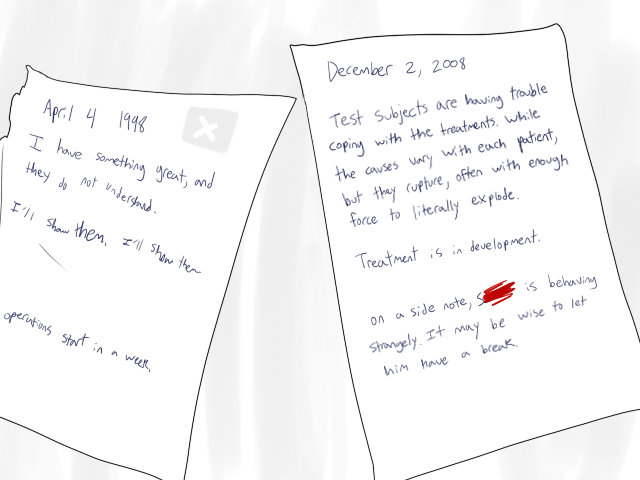 April 4 1998
I have something great, and
they do not understand.
I'll show them. I'll show them
operations start in a week.
December 2, 2008
Test subjects are having trouble
coping with the treatments. While
the causes vary with each patient,
but they rupture, often with enough
force to literally explode.
Treatment is in development.
on a side note, S is behaving
strangely. It may be wise to let
him have a break.